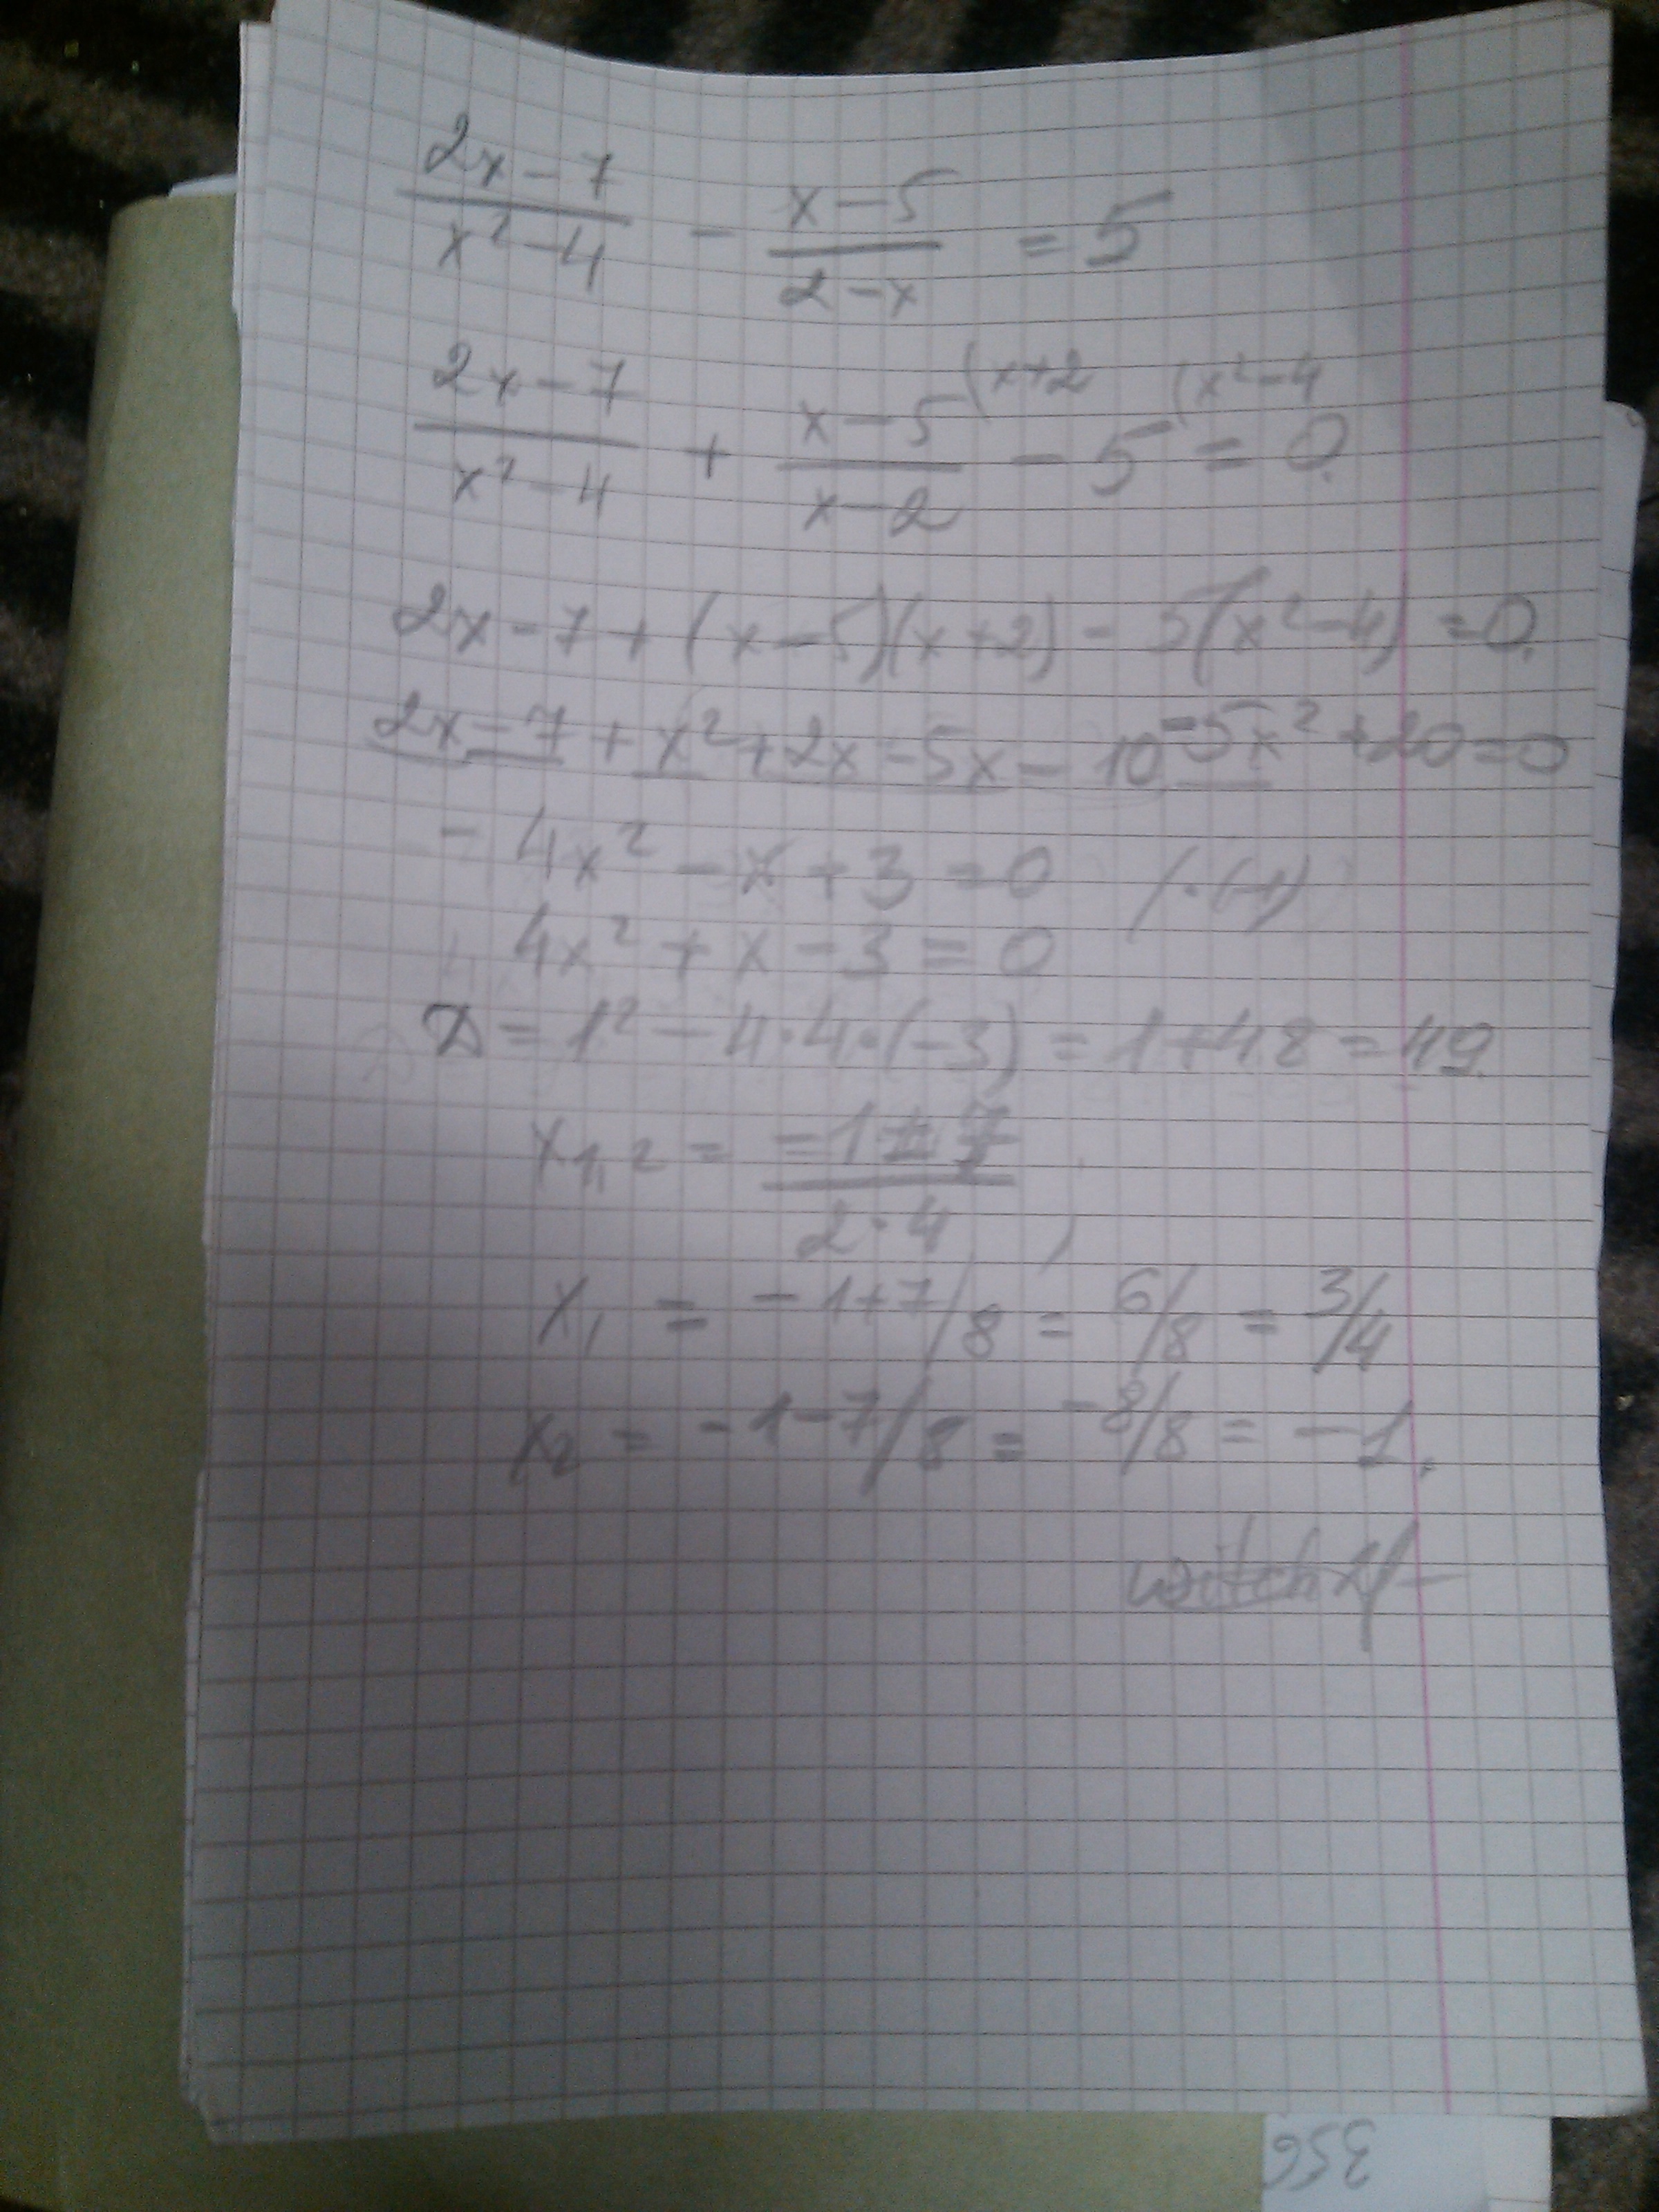 2x-7/x²-4 - x-5/2-x = 5
2x-7/x²-4 + x-5/x-2 (x+2 - 5 (x²-4 = 0.
2x-7+(x-5)(x+2)-5(x²-4)=0.
2x-7+x²+2x-5x-10-5x²+20=0
-4x²-x+3=0 /·(-1)
4x²+x-3=0
D=1²-4·4·(-3)=1+48=49.
x1,2 = -1±7/2·4,
x1 = -1+7/8 = 6/8 = 3/4
x2 = -1-7/8 = -8/8 = -1.
356